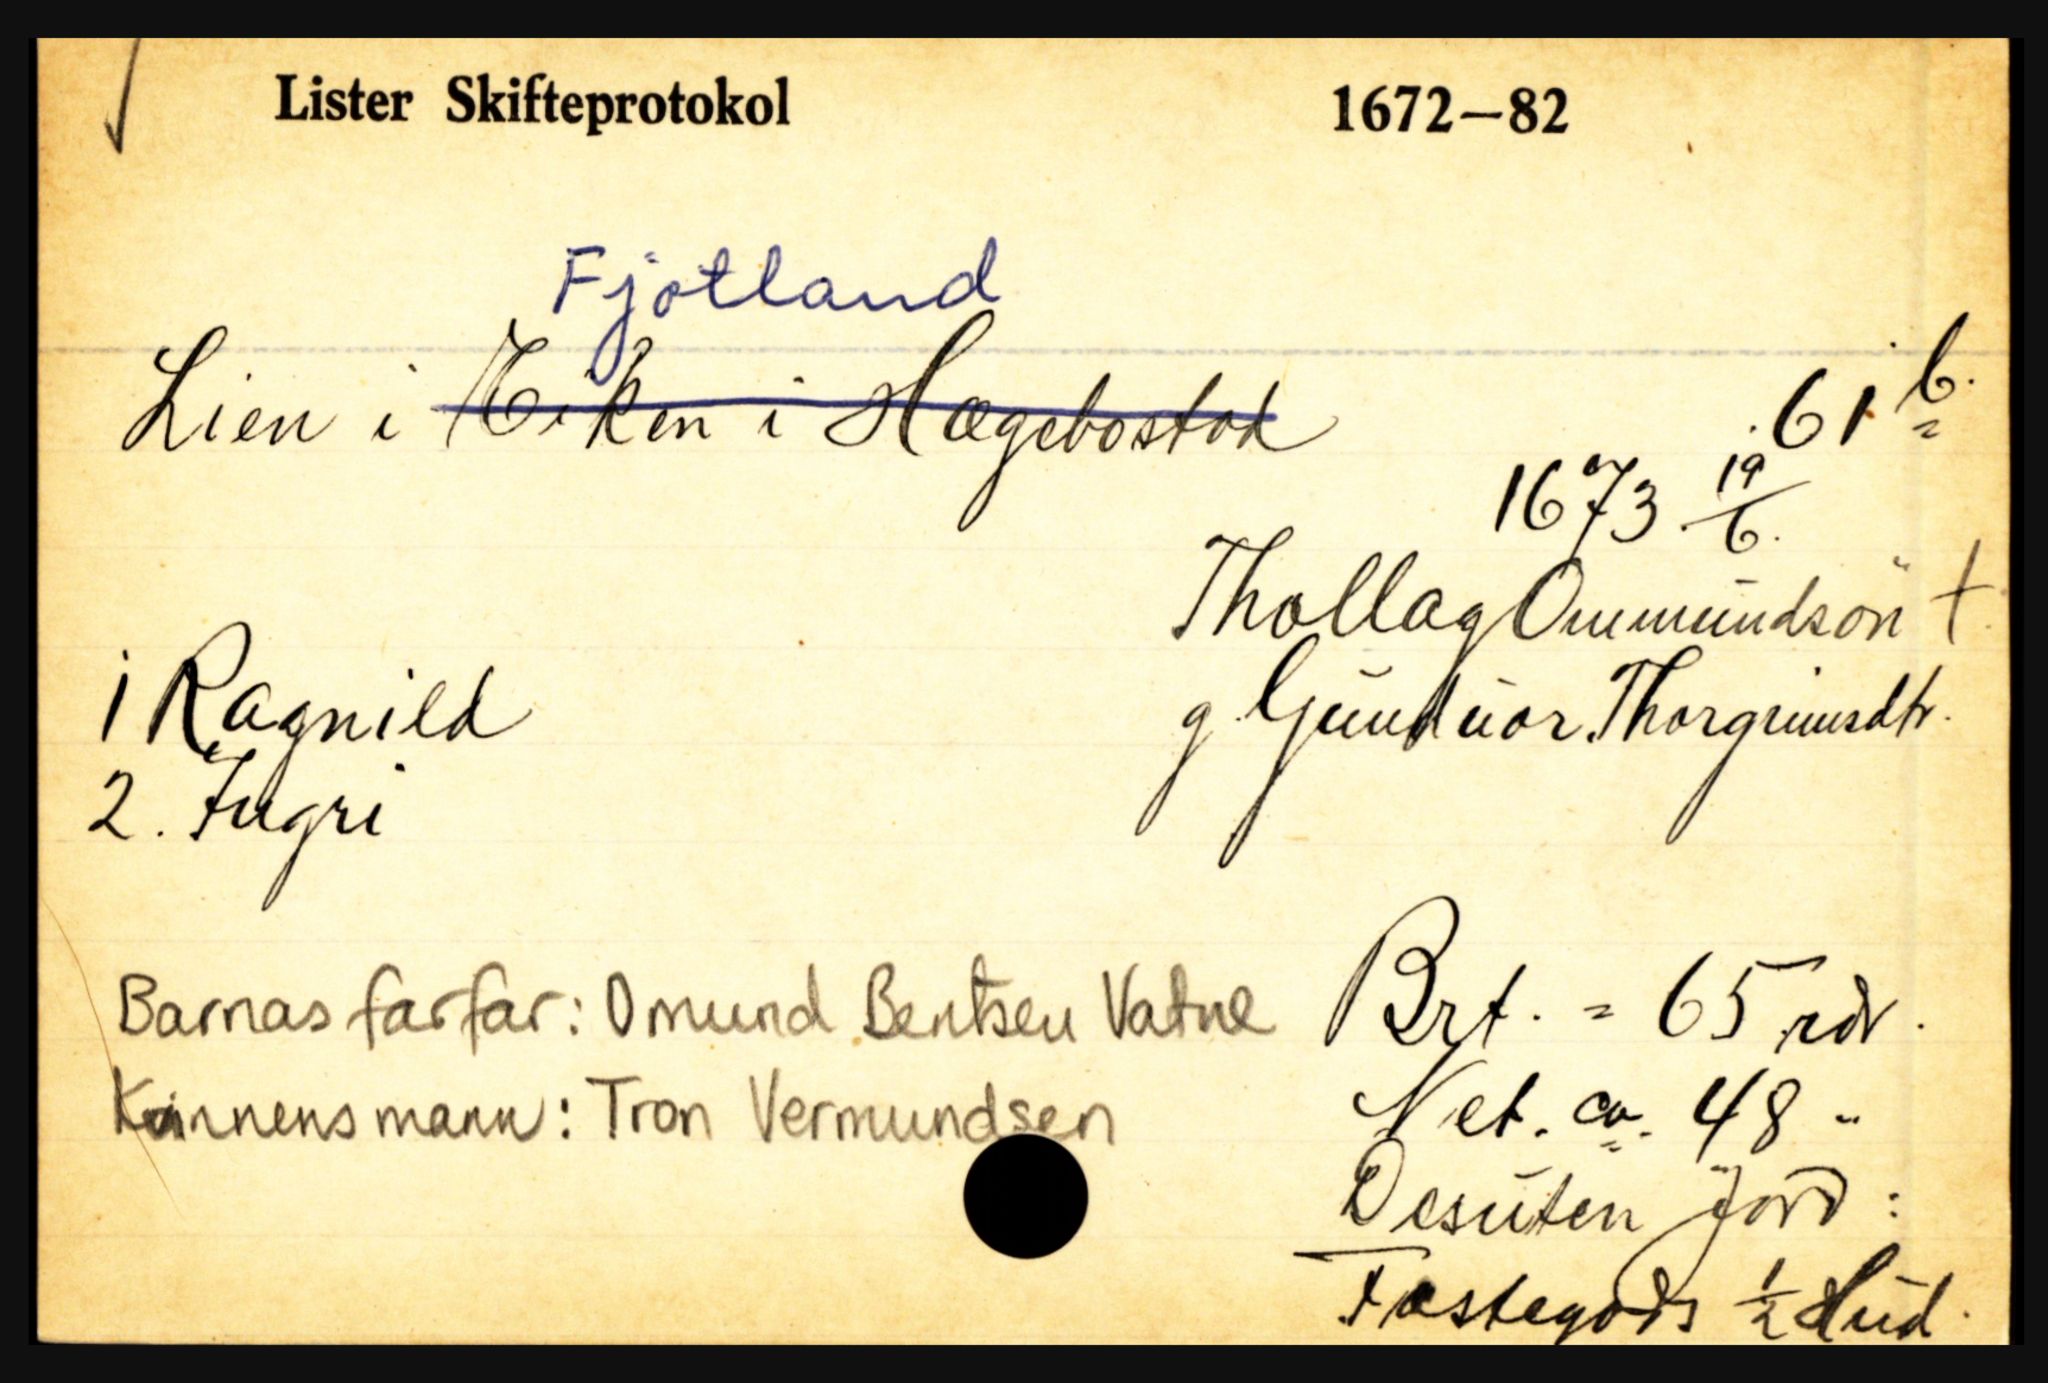 Lister Skifteprotokol 1672–82
Fjotland
Lien i Eiken i Hægebostad 61 b.
1673 19/6.
Thollag Ommundsøn †.
1 Ragnild g. Gunduor Thorgrimsdtr.
2. Ingri
Barnas farfar: Omund Bentsen Vatne
Kvinnens mann: Tron Vermundsen
Brt. = 65 rdr.
Net. ca. 48 "
Desuten Jord:
Fæstegods 1/2 Hud.